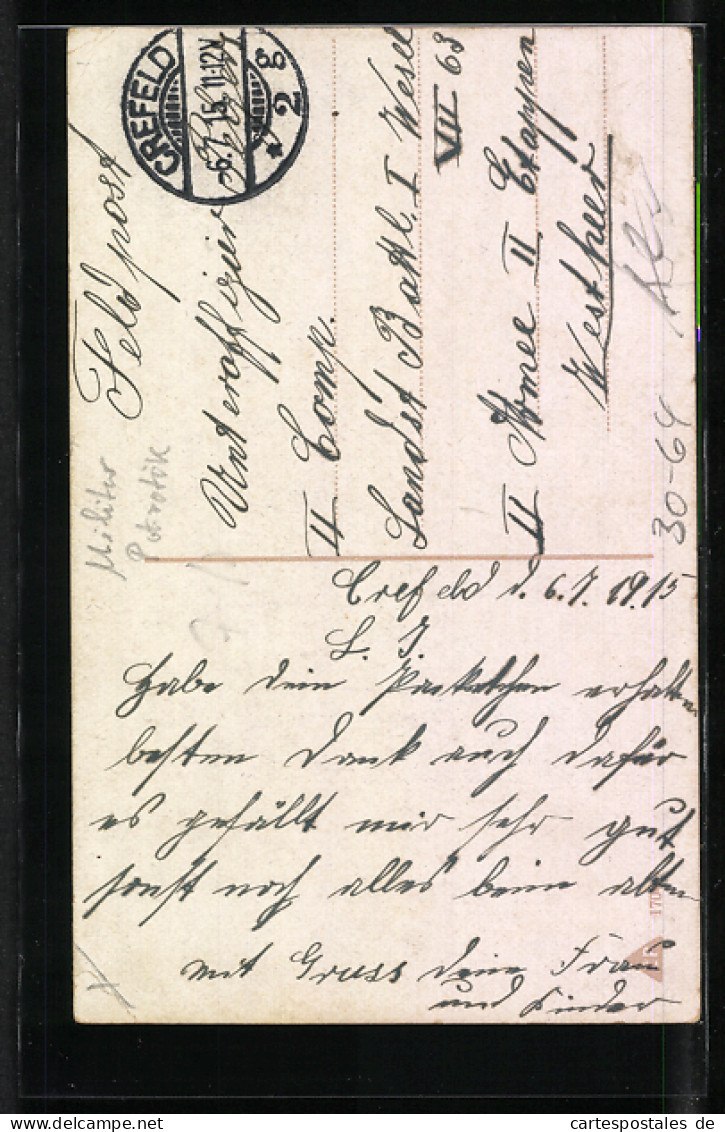 CREFELD
-6.7.15.11-12V.
* 2 g
Feldpost
Unteroffizier
II Comp.
Landst Battl. I Wesel
VII 63
II Armee II Etappen
Westheer
30-64
Militär
Patriotik
Crefeld d. 6.7.1915
L. J.
Habe dein Packetchen erhalten
besten Dank auch dafür
es gefällt mir sehr gut
sonst noch alles beim alten
mit Gruss deine Frau
und Kinder
170
cartespostales.de